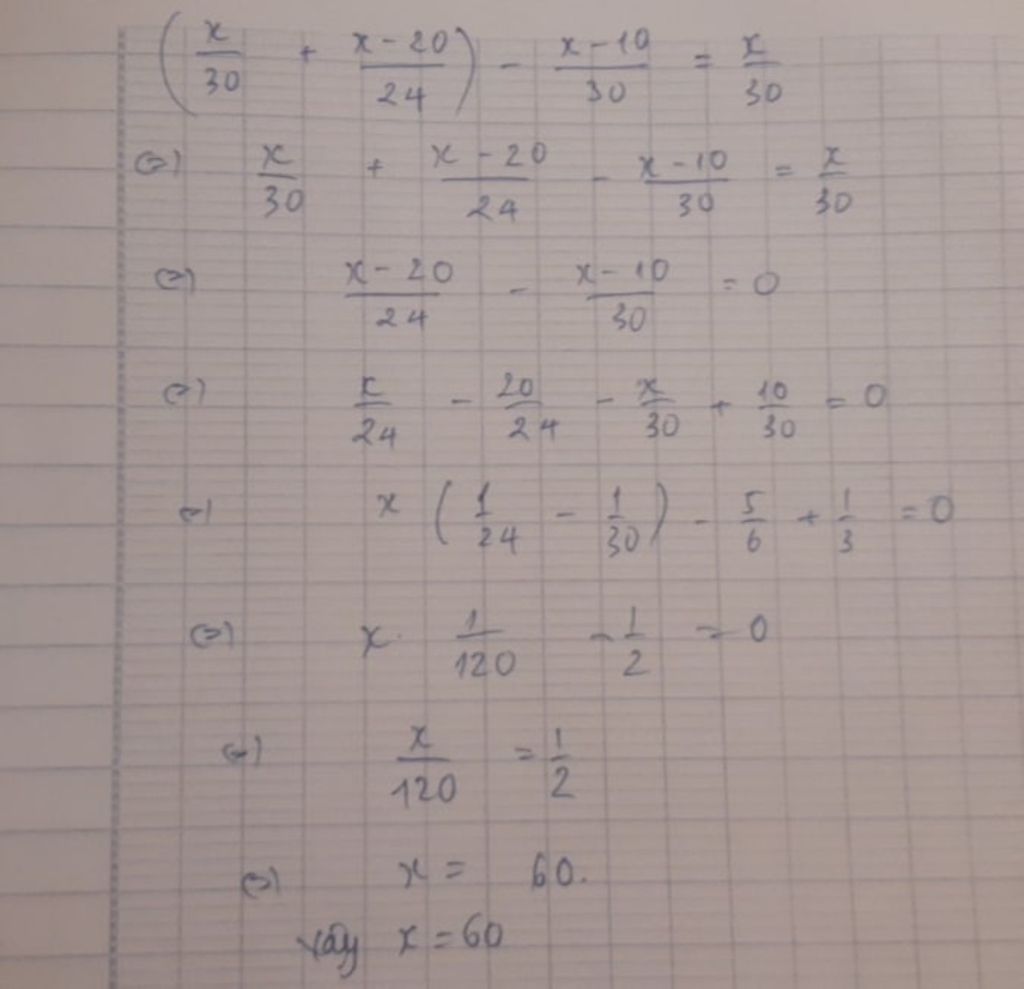 (x/30 + x-20/24) - x-10/30 = x/30
⇔ x/30 + x-20/24 - x-10/30 = x/30
⇔ x-20/24 - x-10/30 = 0
⇔ x/24 - 20/24 - x/30 + 10/30 = 0
⇔ x (1/24 - 1/30) - 5/6 + 1/3 = 0
⇔ x. 1/120 - 1/2 = 0
⇔ x/120 = 1/2
⇔ x = 60.
vậy x = 60